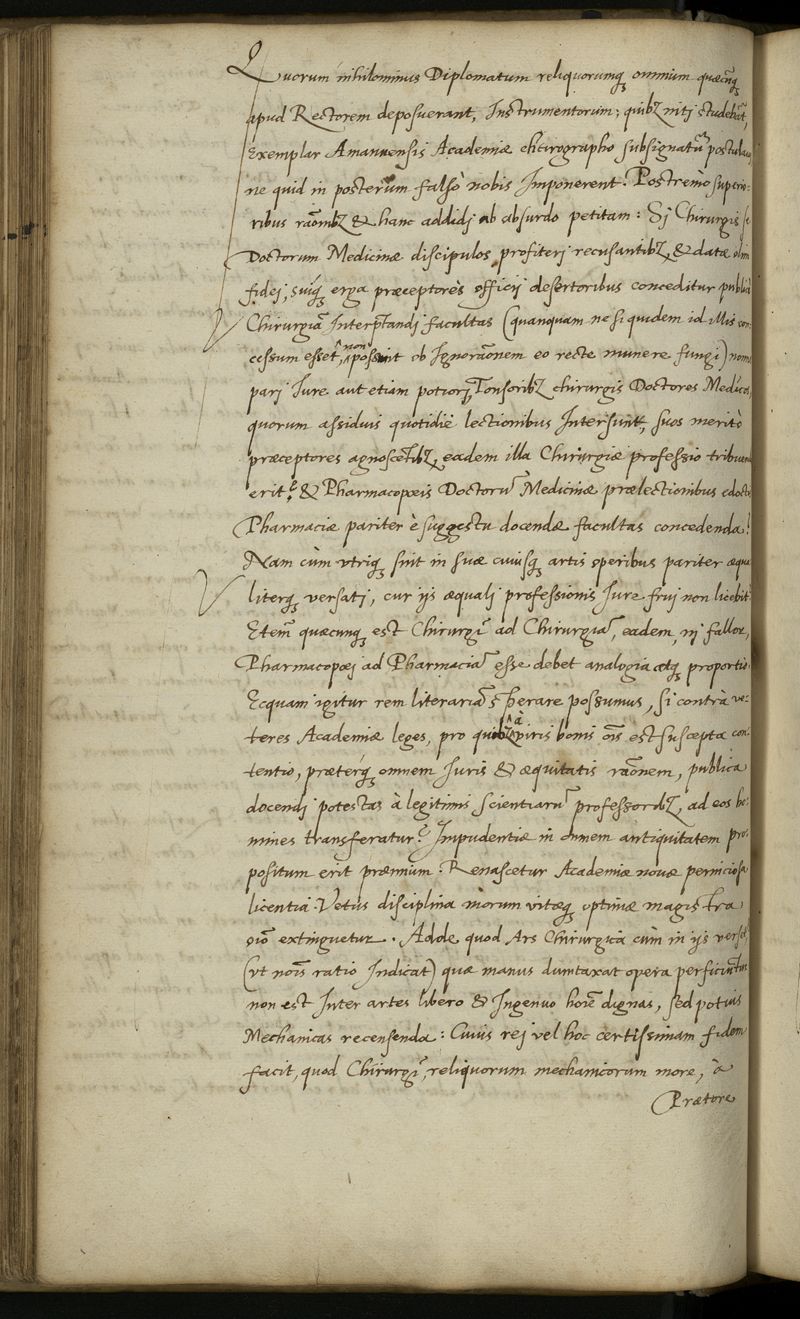 Quorum nihilominus Diplomatum reliquorumq̃ omnium quæcũq̃
apud Rectorem deposuerant, Instrumentorum; quibꝫ nitj studebãt,
Exemplar Amanuensis Academiæ chirographo subsignatũ postulaui
ne quid in posterùm falsò nobis Imponerent. Postremò superio-
ribus raõnibꝫ & hanc addidj ab absurdo petitam: Sj Chirurgis se
Doctorum Medicinæ discipulos profiterj recusantibꝫ, & datæ olim
fidej, suiq̃ erga præceptores officij desertoribus conceditur publicè
Chirurgiã Interp̃tandj facultas (quanquam ne si quidem id illis con-
cessum esset, non possint ob Ignoraõnem eo recte munere fungi) nonne
parj Iure aut etiam potiorj, Tonsoribꝫ chirurgis Doctores Medicos,
quorum assiduis quotidiè lectionibus Intersunt, suos meritò
præceptores agnoscẽtibꝫ, eadem illa Chirurgiæ professio tribuenda
erit? & Pharmacopæis Doctorũ Medicinæ prælectionibus edoctis
Pharmaciæ pariter è suggestu docendæ facultas concedenda?
Nam cùm vtriq̃ sint in suæ cuiusq̃ artis operibus pariter æqua-
literq̃ versatj, cur ijs æqualj professionis Iure frui non licebit?
Etem̃ quæcunq̃ est Chirurgĩ ad Chirurgiã, eadem, nj fallor,
Pharmacopœj ad Pharmaciã esse debet analogia atq̃ proportio.
Ecquam igitur rem literariã sperare possumus, si contrà ve-
teres Academiæ leges, pro quibꝫ à viris bonis oĩs est suscepta con-
tentio, præterq̃ omnem Iuris & æquitatis raõnem, publica
docendj potestas à legitimis scientiarũ professoribꝫ, ad eos ho-
mines transferatur? Impudentiæ in omnem antiquitatem pro-
positum erit præmium: Renascetur Academiæ nouæ perniciosa
licentia: Vetus disciplina morum vitæq̃ optimæ magistra
oĩo extinguetur. Adde quod Ars Chirurgica cùm in ijs verset,
(vt nõis ratio Indicat) quæ manus dumtaxat opera perficiuntur
non est Inter artes libero & Ingenuo hoĩe dignas, sed potius
Mechanicas recensenda: Cuius rej vel hoc certissimam fidem
facit, quod Chirurgĩ, reliquorum mechanicorum more, à
Prætore